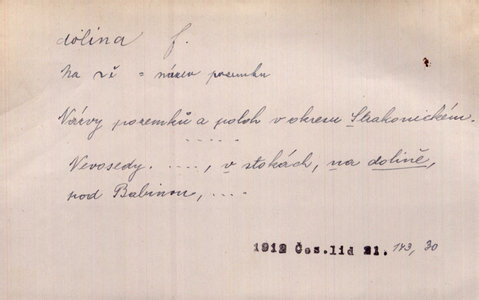 dolina f.
Na ~ě = název pozemku
Názvy pozemků a poloh v okresu Strakonickém.
.....
Nevosedy. ...., v stokách, na dolině,
pod Babinou, ....
1912 Čes.lid 21. 143, 30